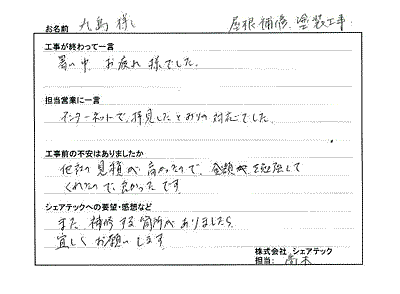 お名前 丸島 様 屋根補修、塗装工事
工事が終わって一言
暑い中 お疲れ様でした。
担当営業に一言
インターネットで、拝見したとおりの対応でした。
工事前の不安はありましたか
他社の見積が高かったので、金額が勉強して
くれたので、良かったです
シェアテックへの要望・感想など
また、補修する箇所がありましたら
宜しくお願いします
株式会社 シェアテック
担当: 高木